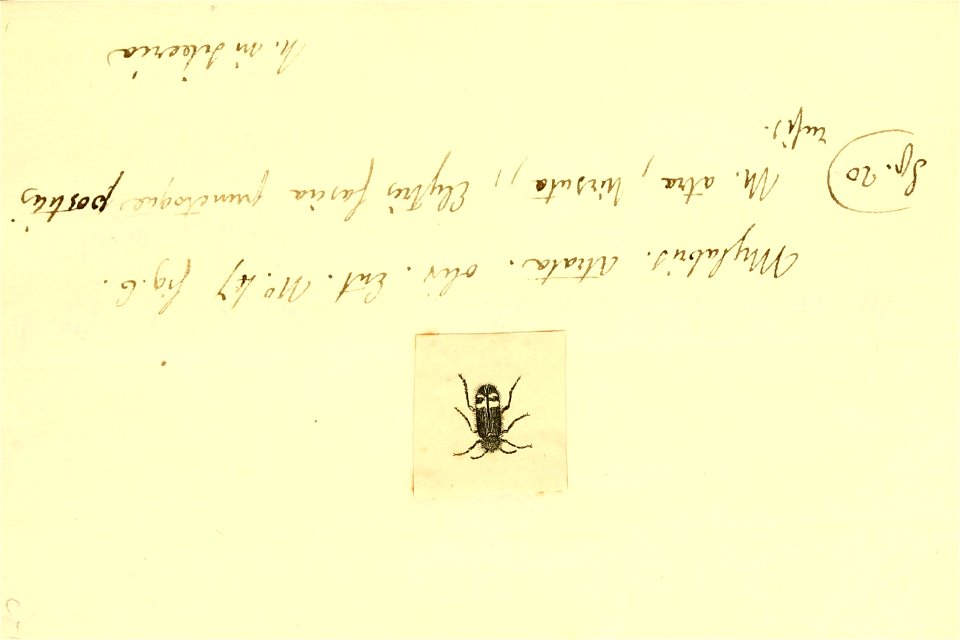 Mylabris. atrata. Oliv. Ent. No 47 fig. 6.
Sp. 20 M. atra, hirsuta,, Elytris fascia punctoque posticis
rufis.
h. in Siberia